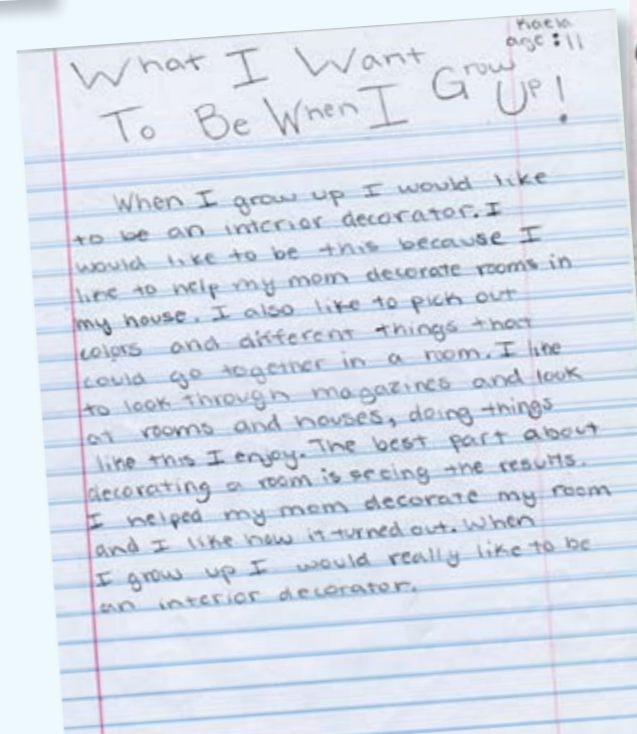 Kaela
age:11
What I Want
To Be When I Grow Up!
When I grow up I would like
to be an interior decorator. I
would like to be this because I
like to help my mom decorate rooms in
my house. I also like to pick out
colors and different things that
could go together in a room. I like
to look through magazines and look
at rooms and houses, doing things
like this I enjoy. The best part about
decorating a room is seeing the results.
I helped my mom decorate my room
and I like how it turned out. When
I grow up I would really like to be
an interior decorator.